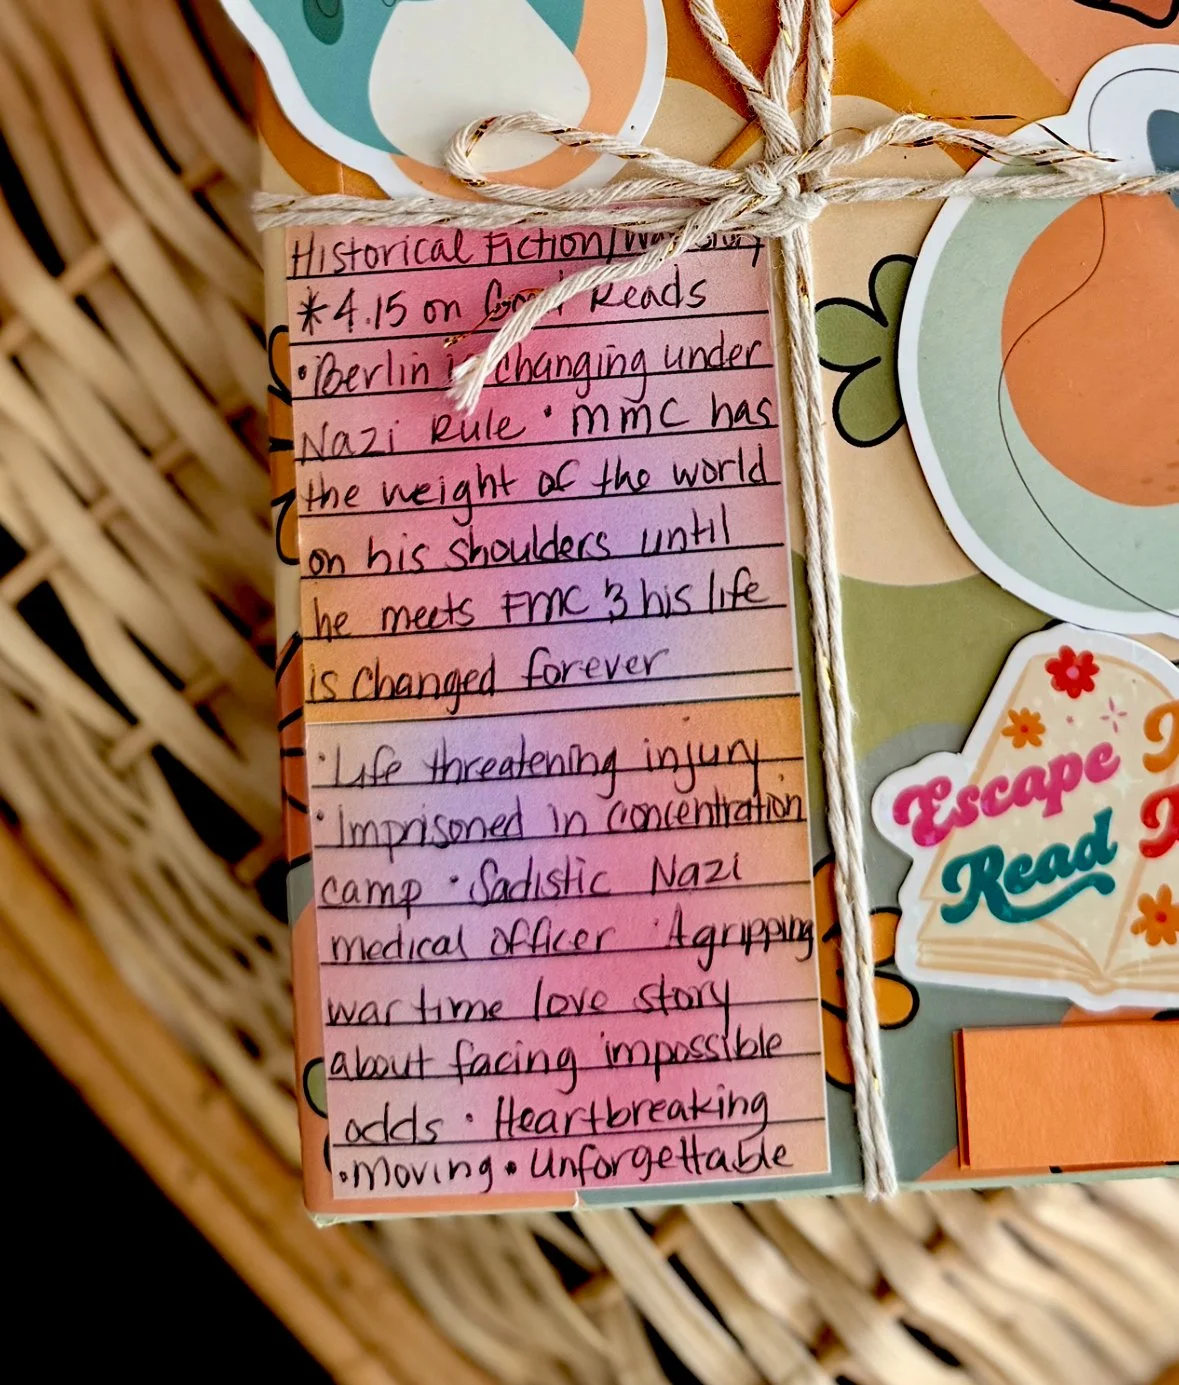 Historical Fiction/War Story
*4.15 on Good Reads
•Berlin is changing under
Nazi Rule • MMC has
the weight of the world
on his shoulders until
he meets FMC & his life
is changed forever
•Life threatening injury
•Imprisoned in concentration
camp •Sadistic Nazi
medical officer •A gripping
wartime love story
about facing impossible
odds • Heartbreaking
•Moving • Unforgettable
Escape
Read